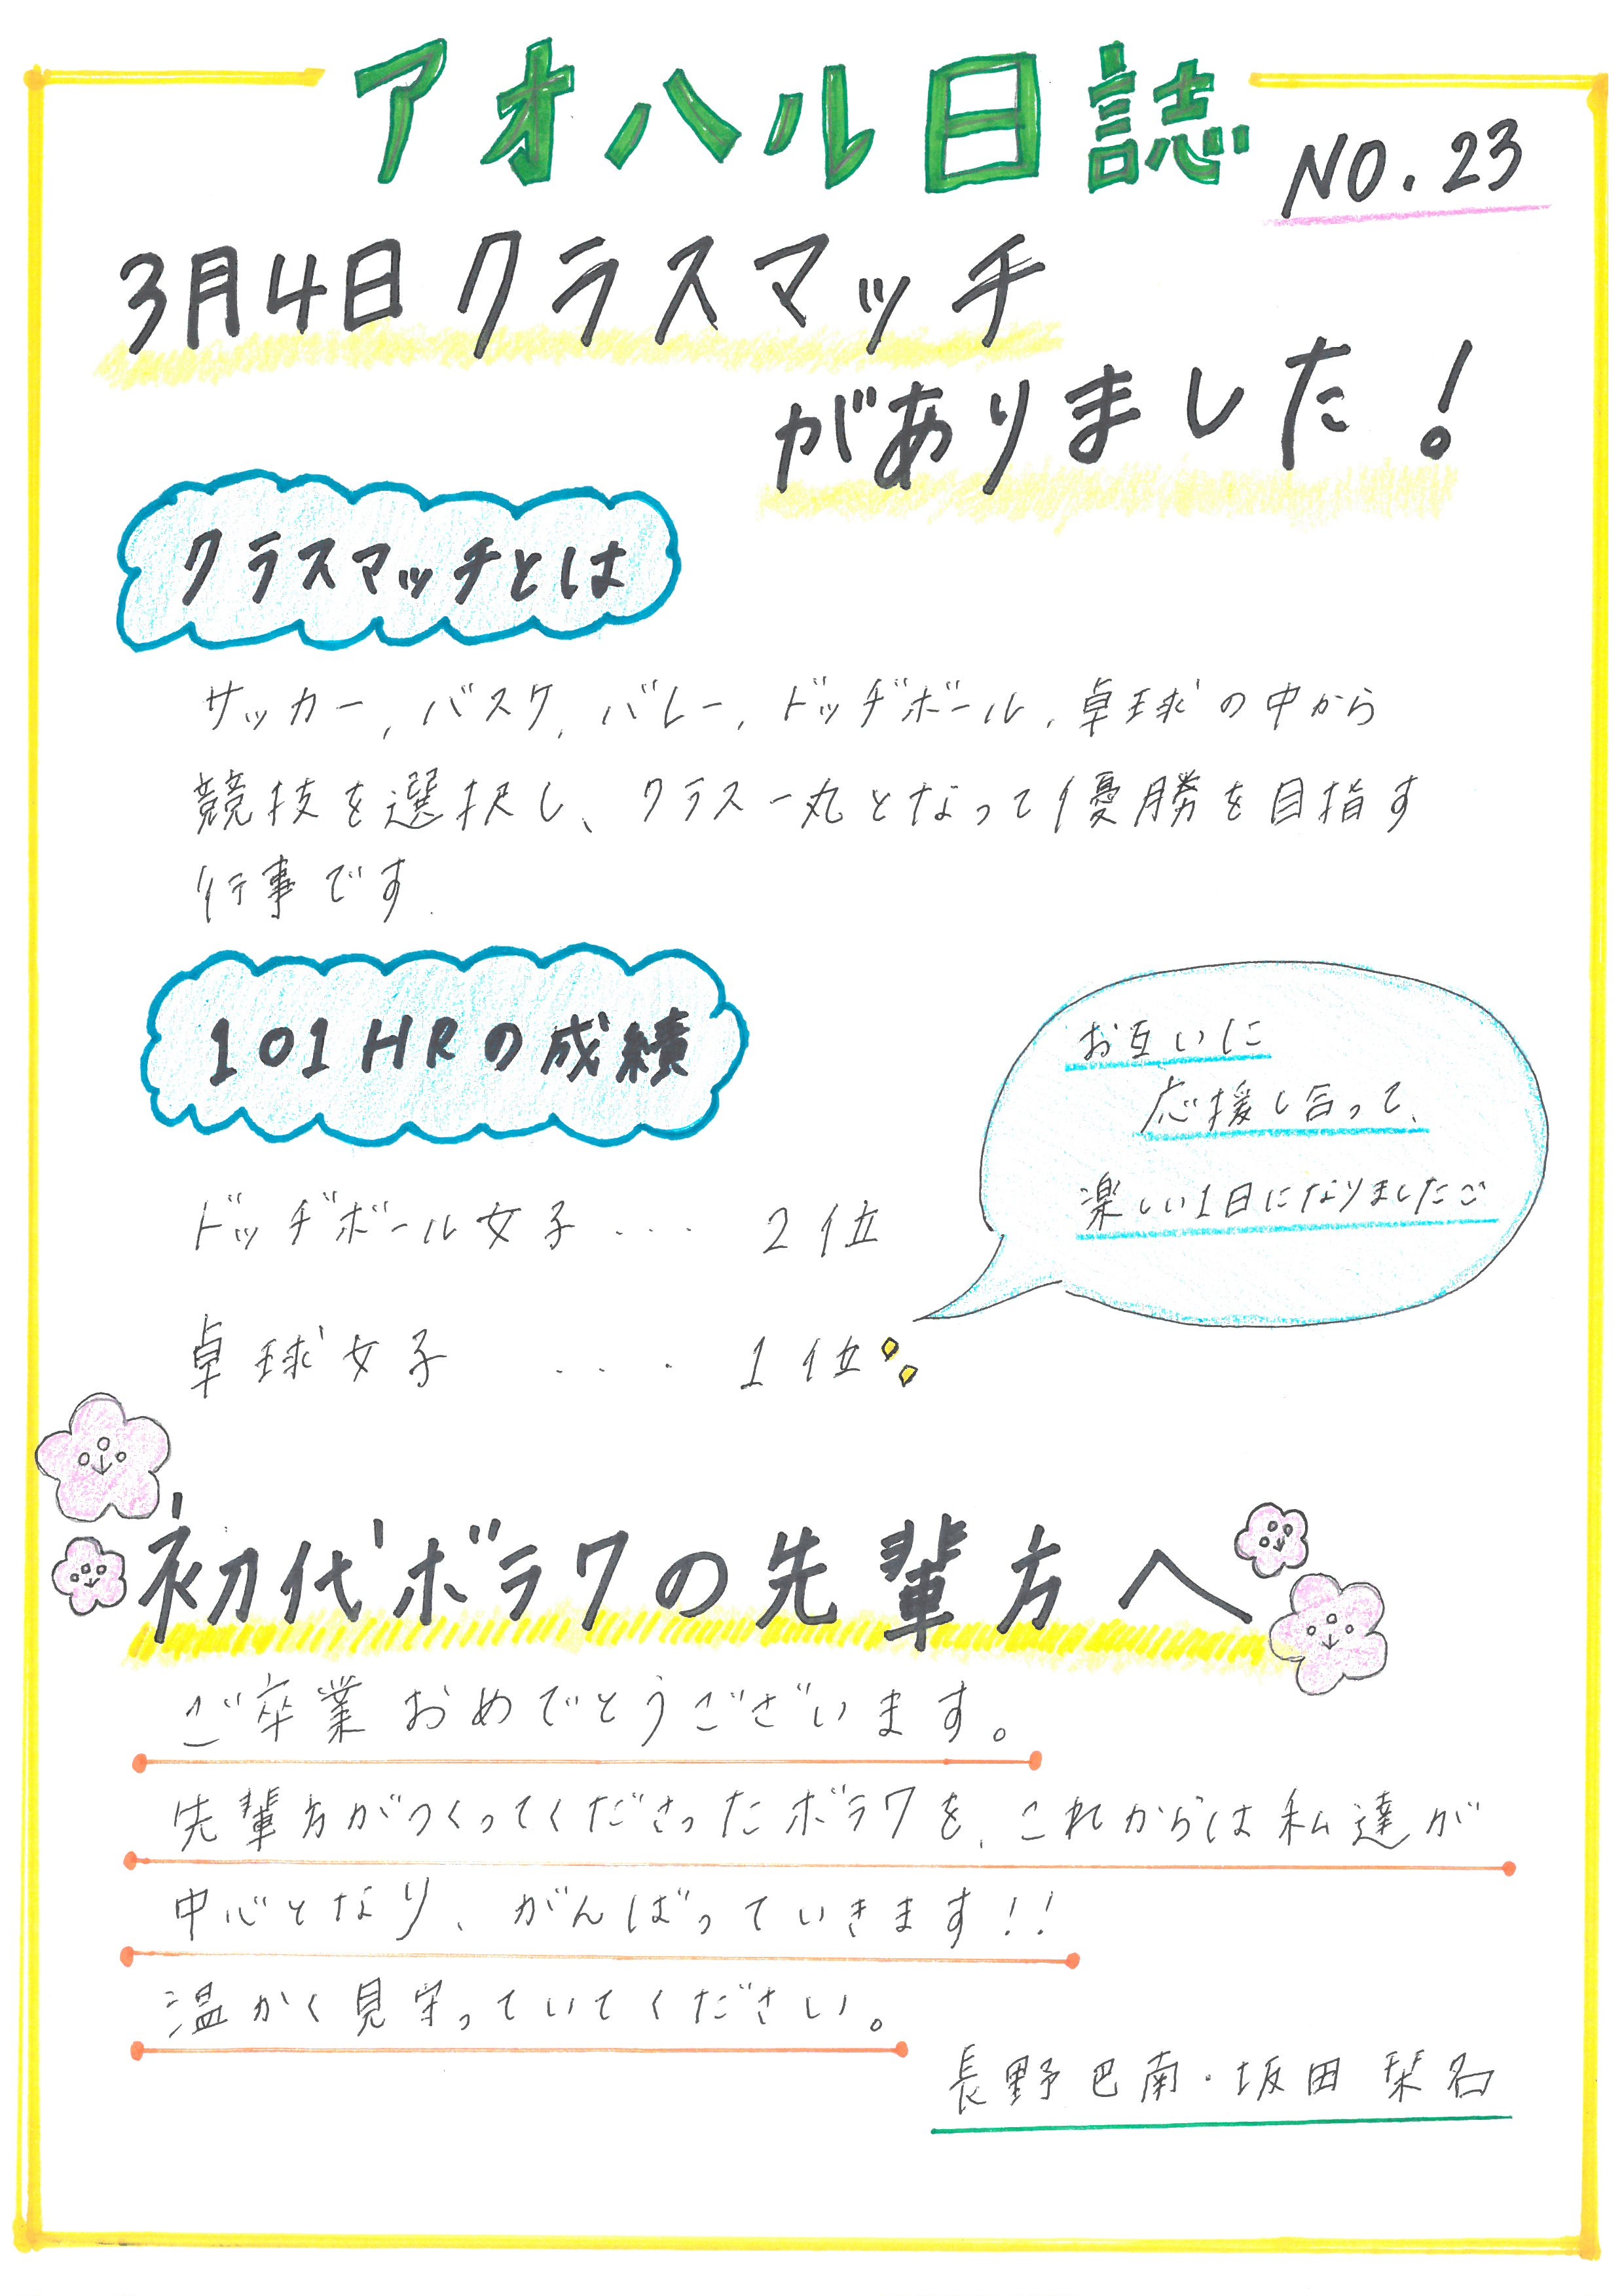 アオハル日誌
NO.23
3月4日クラスマッチ
がありました!
クラスマッチとは
サッカー,バスケ,バレー,ドッヂボール,卓球の中から
競技を選択し、クラス一丸となって優勝を目指す
行事です.
101HRの成績
お互いに
応援し合って、
楽しい1日になりましたご
ドッヂボール女子・・・ 2位
卓球女子 ・・・・ 1位
初代ボラワの先輩方へ
ご卒業おめでとうございます。
先輩方がつくってくださったボラワを、これからは私達が
中心となり、がんばっていきます!!
温かく見守っていてください。
長野巴南・坂田栞名